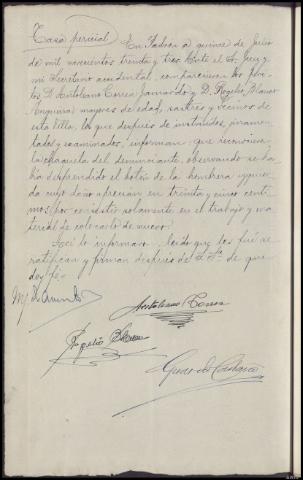 Tasa pericial. En Padron a quince de Julio
de mil novecientos treinta y tres. Ante el Sr. Juez y
mi Secretario accidental, comparecieron los peri-
tos D. Antoliano Correa Jamardo y D. Rogelio Blanco
Angueira, mayores de edad, sastres y vecinos de
esta villa, los que despues de instruidos, juramen-
tados y examinados, informan: que reconocieron
la chaqueta del denunciante, observando se ha-
bia desprendido el botón de la hombrera izquier-
da cuyo daño aprecian en treinta y cinco centi-
mos por consistir solamente en el trabajo y ma-
terial de colocarlo de nuevo.
Así lo informaron, leído que les fué se
ratifican y firman despues de S. Sª. de que
doy fé.
Antoliano Correa
Rogelio Blanco